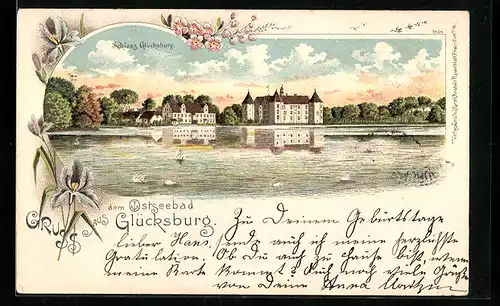 Schloss Glücksburg.
Gruss aus
dem Ostseebad
Glücksburg.
Zu Deinem Geburtstage
lieber Hans, sende auch ich meine herzlichste
Gratulation. Ob du auch zu Hause bist, wenn
meine Karte kommt? Auch noch viele Grüße
von Deine Anna